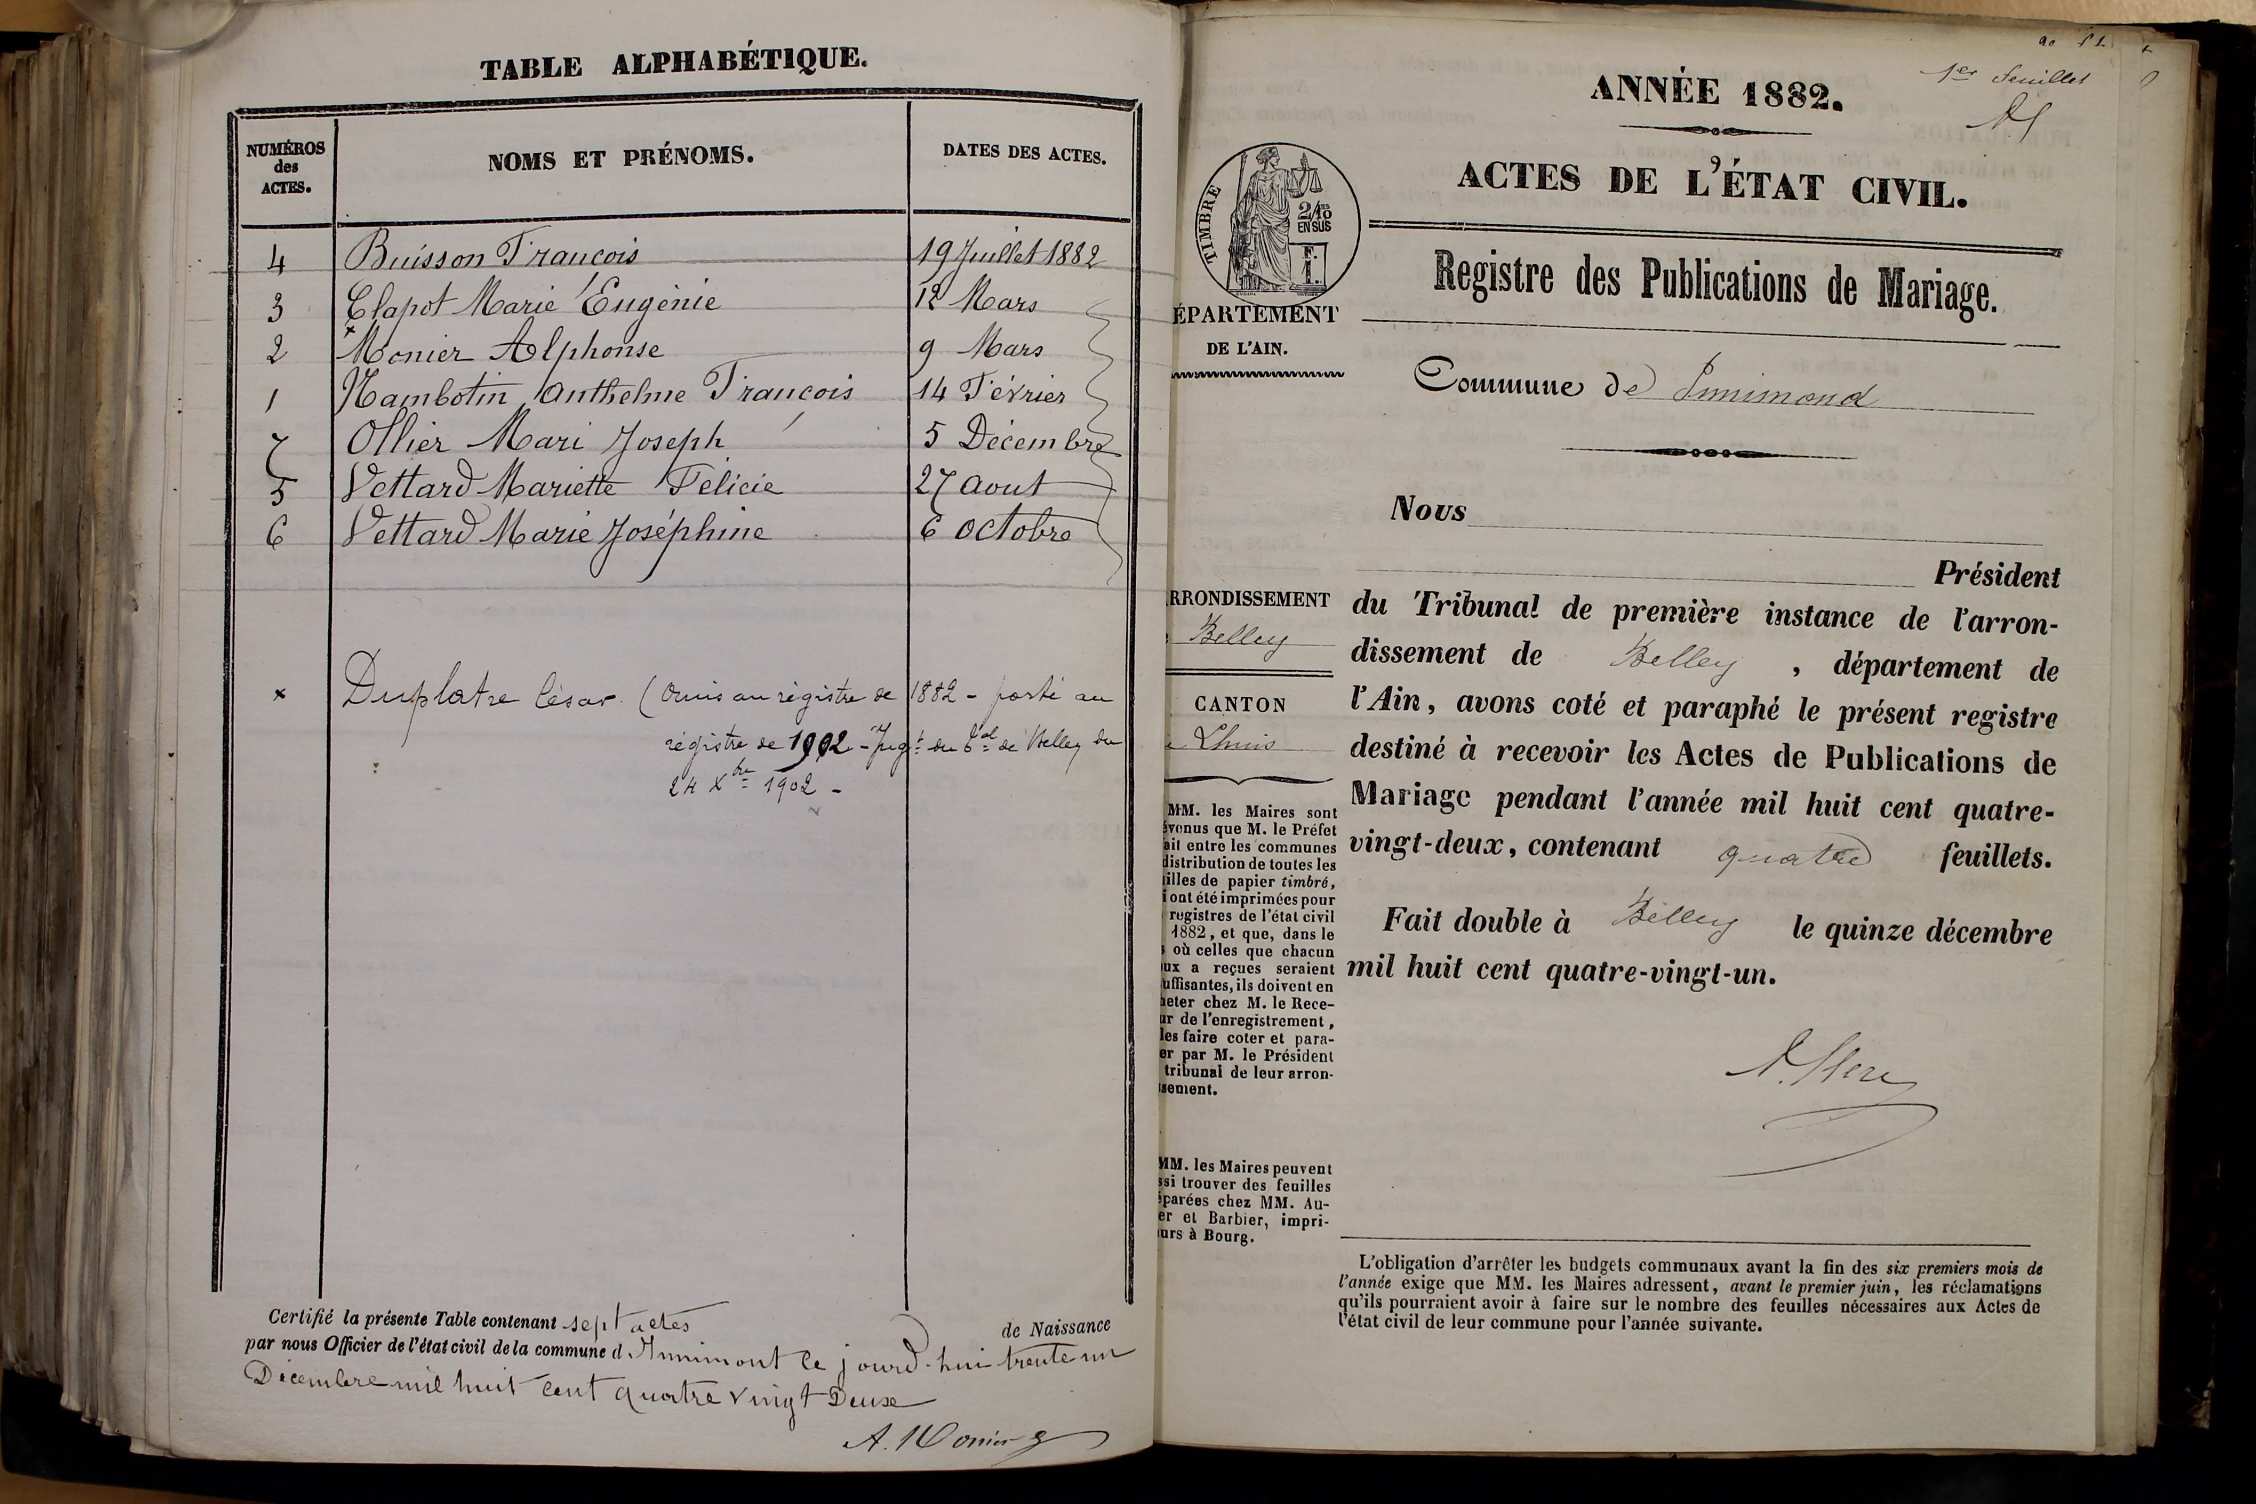 TABLE ALPHABÉTIQUE.
NUMÉROS des ACTES.
NOMS ET PRÉNOMS.
DATES DES ACTES.
4 Buisson François 19 Juillet 1882
3 Clapot Marie Eugénie 12 Mars
2 Monier Alphonse 9 Mars
1 Nambotin Anthelme François 14 Février
7 Ollier Mari Joseph 5 Décembre
5 Vettard Mariette Félicie 27 aout
6 Vettard Marie Joséphine 6 octobre
x Duplatre César (Omis au régistre de 1882 - porté au
régistre de 1902 - Jugt du bal de Belley du
24 Xbre 1902 -
Certifié la présente Table contenant sept actes de Naissance
par nous Officier de l'état civil de la commune d'Innimont ce jourd'hui trente un
Décembre mil huit cent quatre vingt Deux
A. Monier
1er feuillet
ANNÉE 1882.
ACTES DE L'ÉTAT CIVIL.
TIMBRE
2/10mes
EN SUS
F.
1.
Registre des Publications de Mariage.
ÉPARTEMENT
DE L'AIN.
Commune de Innimond
Nous
Président
du Tribunal de première instance de l'arron-
dissement de Belley, département de
l'Ain, avons coté et paraphé le présent registre
destiné à recevoir les Actes de Publications de
Mariage pendant l'année mil huit cent quatre-
vingt-deux, contenant quatre feuillets.
Fait double à Belley le quinze décembre
mil huit cent quatre-vingt-un.
RRONDISSEMENT
Belley
CANTON
Lhuis
MM. les Maires sont
évenus que M. le Préfet
ait entre les communes
distribution de toutes les
illes de papier timbré,
i ont été imprimées pour
registres de l'état civil
1882, et que, dans le
s où celles que chacun
ux a reçues seraient
uffisantes, ils doivent en
heter chez M. le Rece-
ur de l'enregistrement,
les faire coter et para-
er par M. le Président
tribunal de leur arron-
ssement.
MM. les Maires peuvent
ssi trouver des feuilles
éparées chez MM. Au-
er et Barbier, impri-
urs à Bourg.
L'obligation d'arrêter les budgets communaux avant la fin des six premiers mois de
l'année exige que MM. les Maires adressent, avant le premier juin, les réclamations
qu'ils pourraient avoir à faire sur le nombre des feuilles nécessaires aux Actes de
l'état civil de leur commune pour l'année suivante.